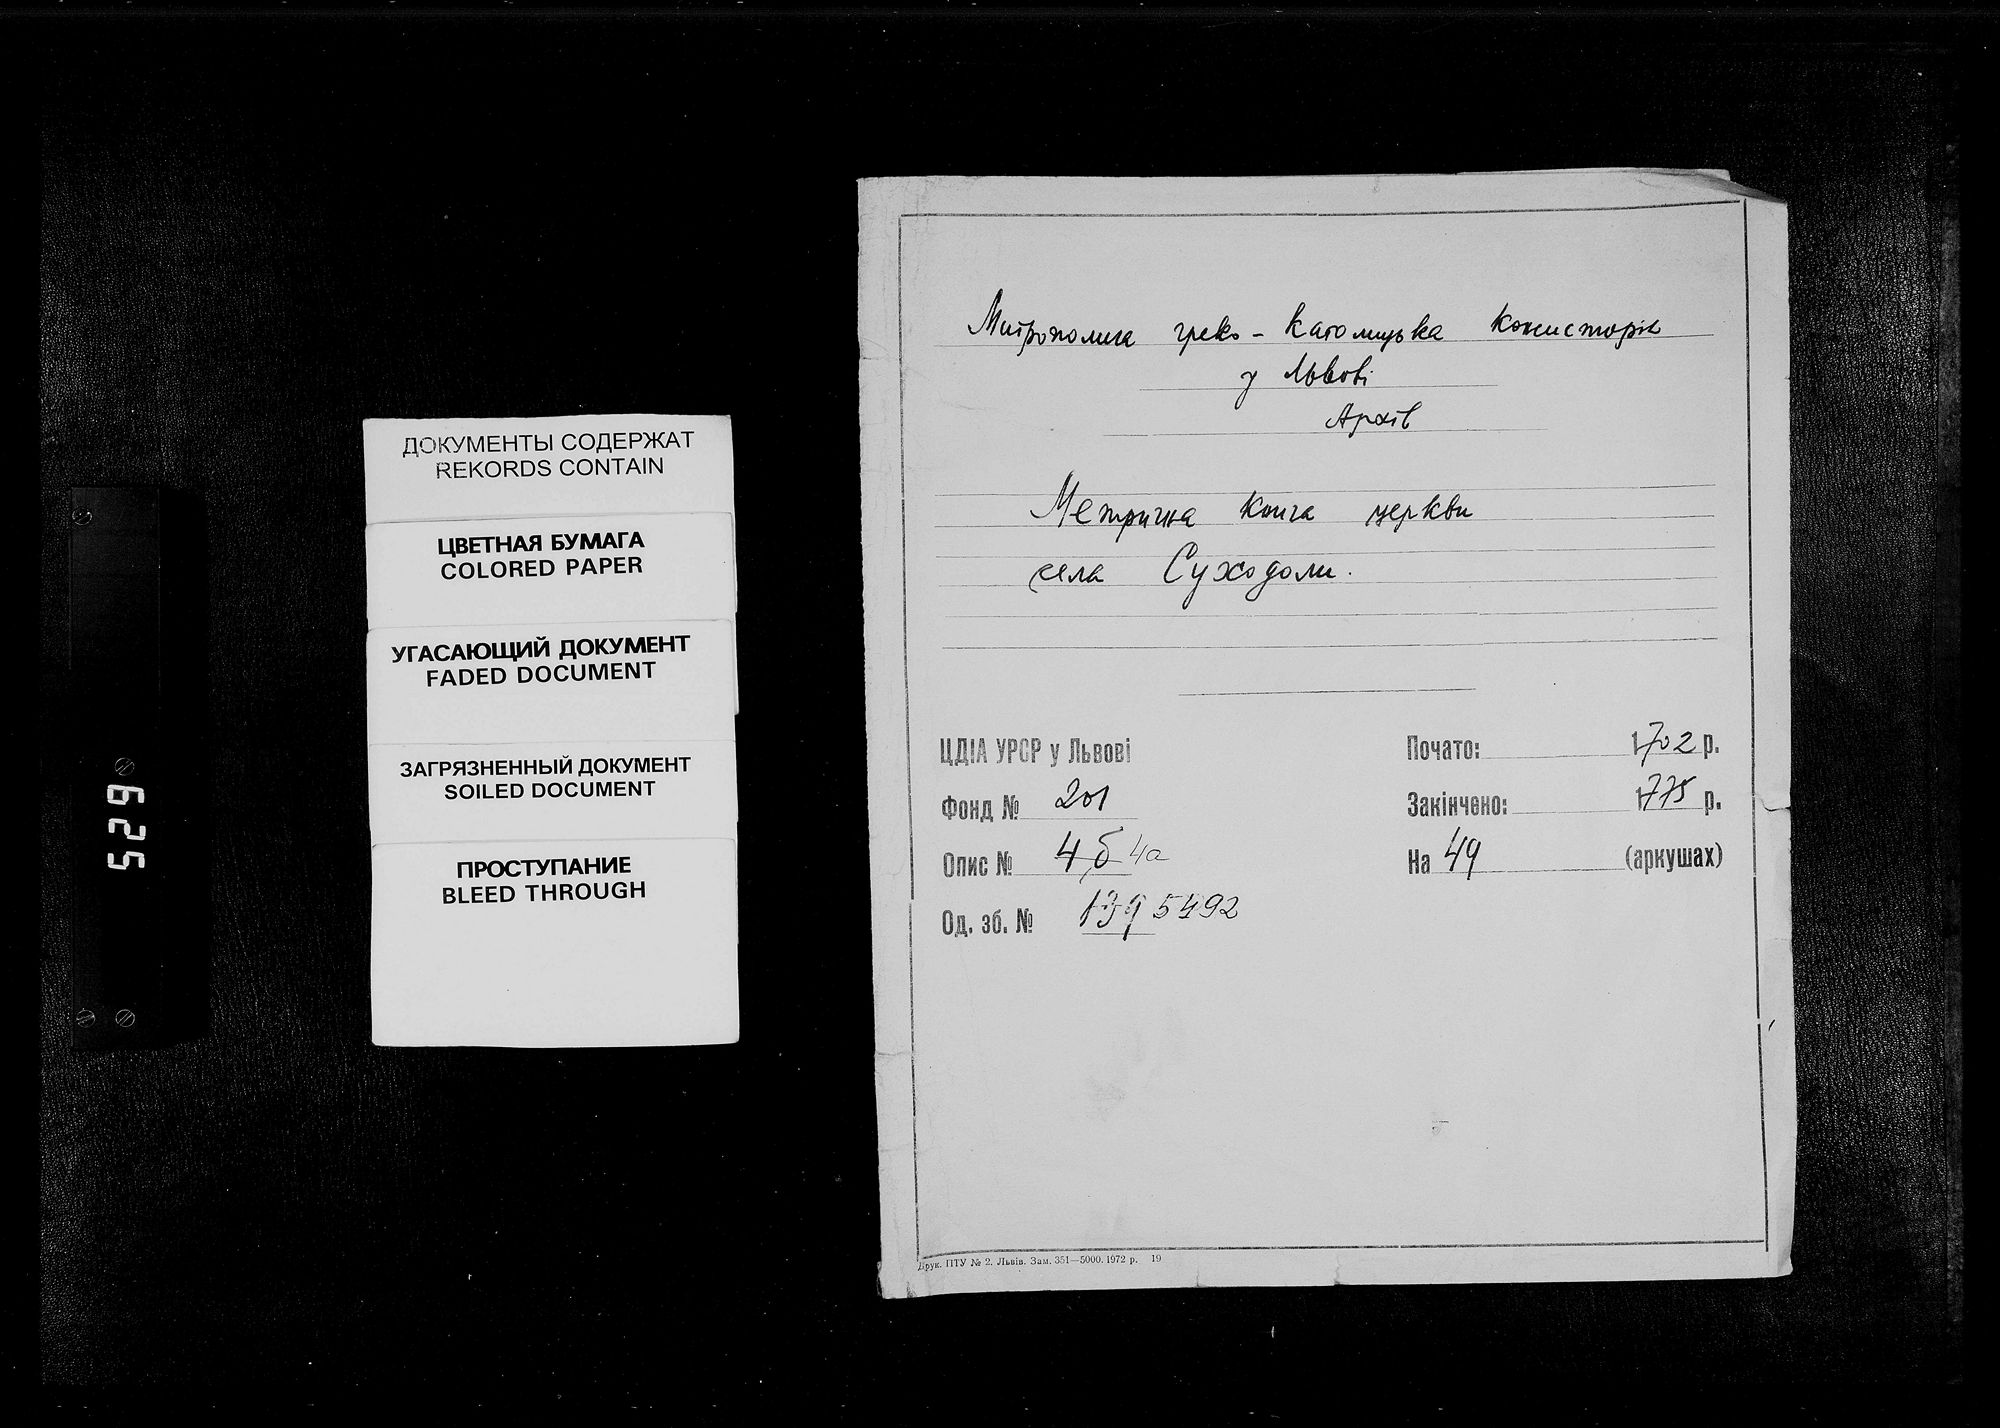 ДОКУМЕНТЫ СОДЕРЖАТ
REKORDS CONTAIN
ЦВЕТНАЯ БУМАГА
COLORED PAPER
УГАСАЮЩИЙ ДОКУМЕНТ
FADED DOCUMENT
ЗАГРЯЗНЕННЫЙ ДОКУМЕНТ
SOILED DOCUMENT
ПРОСТУПАНИЕ
BLEED THROUGH
625
Митрополича греко-католицька консисторія
у Львові
Архів
Метрична книга церкви
села Суходоли.
ЦДІА УРСР у Львові
Фонд № 201
Опис № 4б 4а
Од. зб. № 139 5492
Почато: 1702 р.
Закінчено: 1775 р.
На 49 (аркушах)
Друк. ПТУ № 2. Львів. Зам. 351—5000. 1972 р. 19